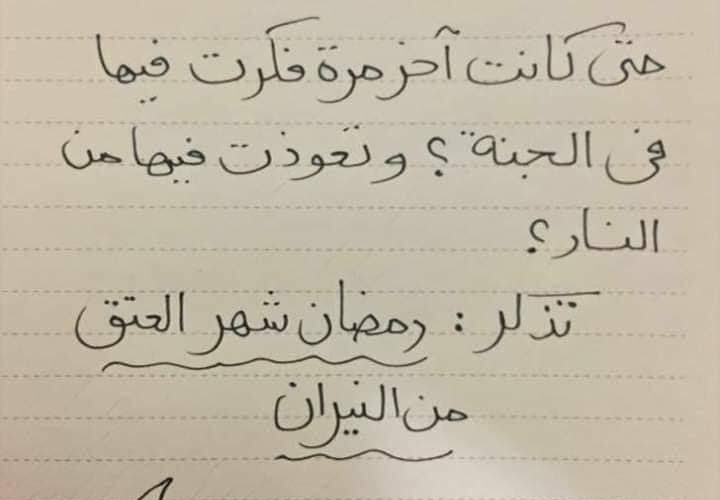 متى كانت آخر مرة فكرت فيها
فى الجنة ؟ وتعوذت فيها من
النار ؟
تذكر : رمضان شهر العتق
من النيران